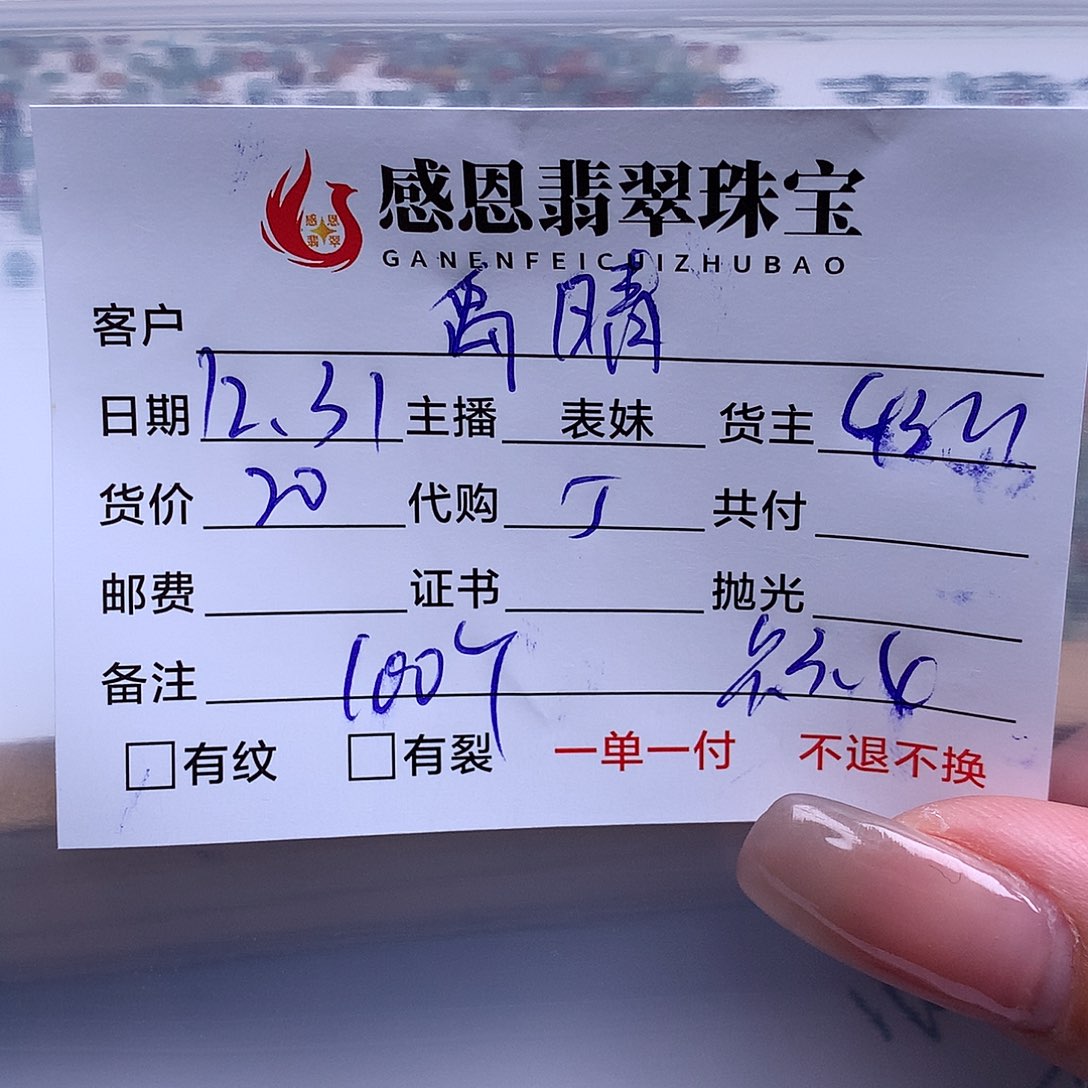 感恩翡翠珠宝
感恩
翡翠
GANENFEICUIZHUBAO
客户 禹晴
日期 12、31 主播 表妹 货主
货价 20 代购 丁 共付
邮费 证书 抛光
备注 100个
有纹 有裂 一单一付 不退不换